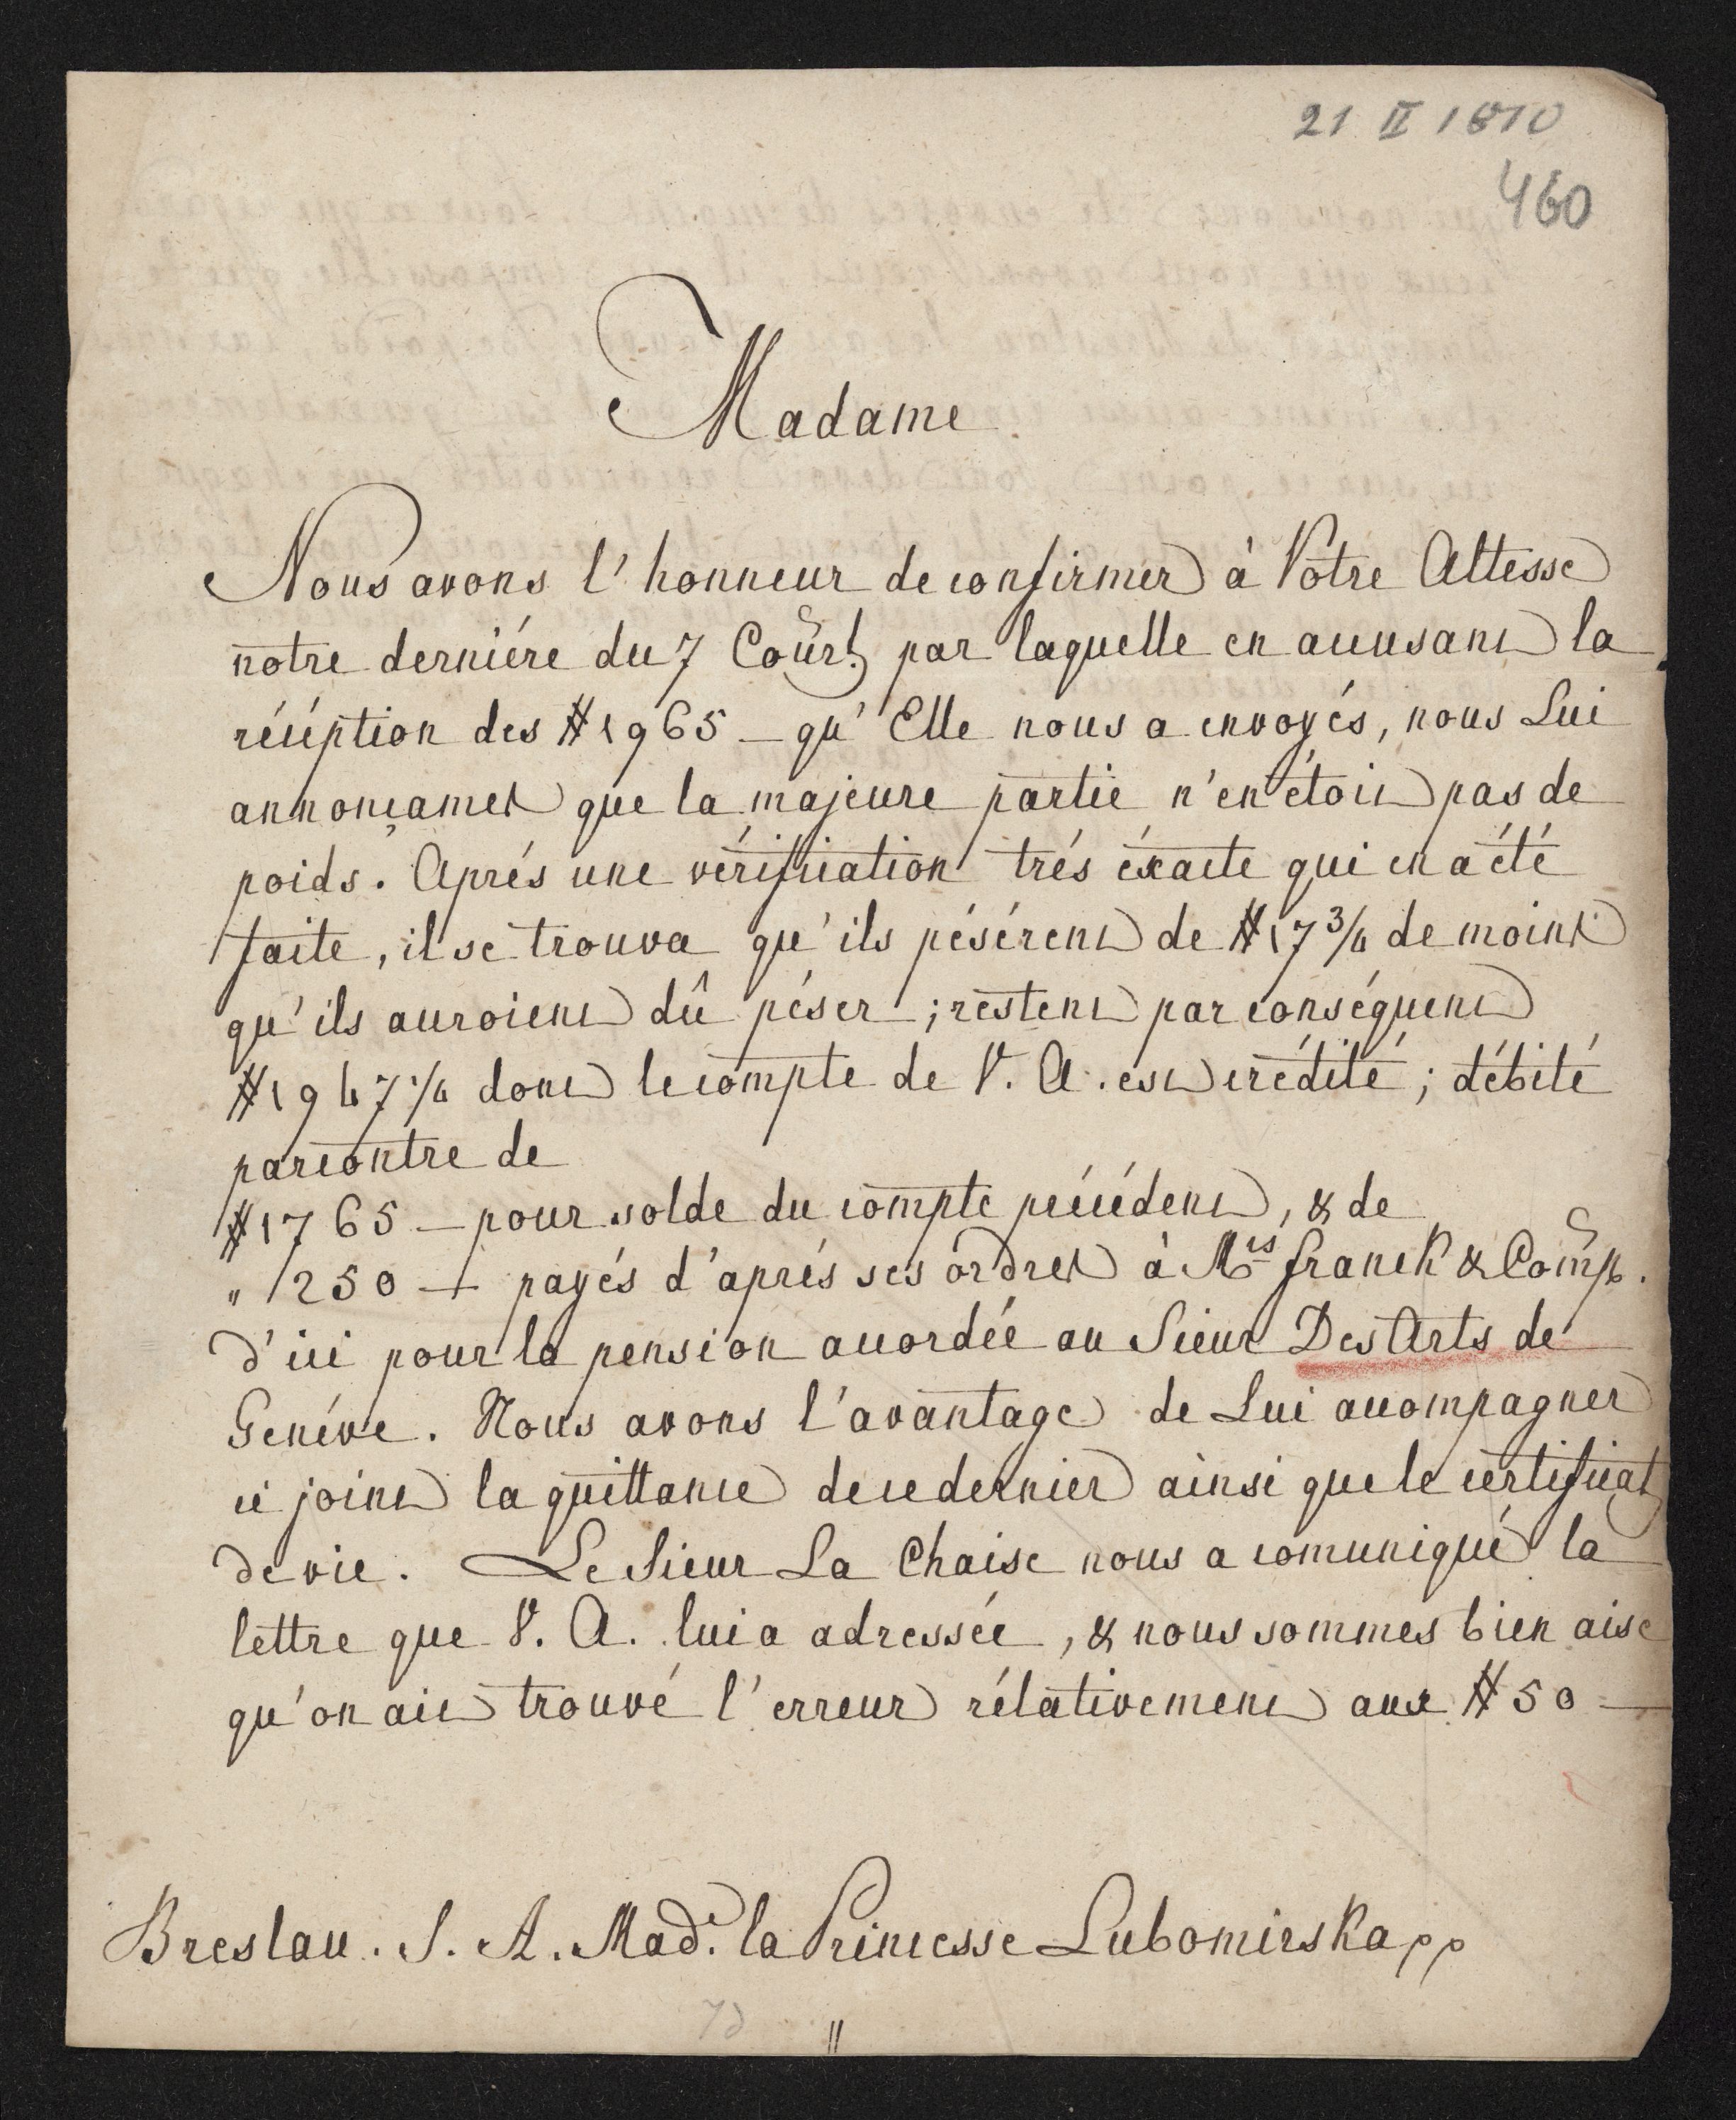 21 II 1810
460
Madame
Nous avons l'honneur de confirmer à Votre Altesse
notre derniére du 7 Cour.t par laquelle en accusant la
récéption des # 1965 — qu'Elle nous a envoyés, nous Lui
annonçames que la majeure partie n'en étoit pas de
poids. Aprés une vérification trés éxacte qui en a été
faite, il se trouva qu'ils pésérent de # 17 3/4 de moins
qu'ils auroient dû péser ; restent par conséquent
# 1947 1/4 dont le compte de V. A. est crédité ; débité
parcontre de
# 1765 — pour solde du compte précédent, & de
" 250 — payés d'aprés ses ordres à M.rs Franck & Comp.
d'ici pour la pension accordée au Sieur Des Arts de
Genéve. Nous avons l'avantage de Lui accompagner
ci joint la quittance de ce dernier ainsi que le certificat
de vie. Le Sieur La Chaise nous a comuniqué la
lettre que V. A. lui a adressée, & nous sommes bien aise
qu'on ait trouvé l'erreur rélativement aux # 50 —
Breslau. S. A. Mad.e la Princesse Lubomirska pp